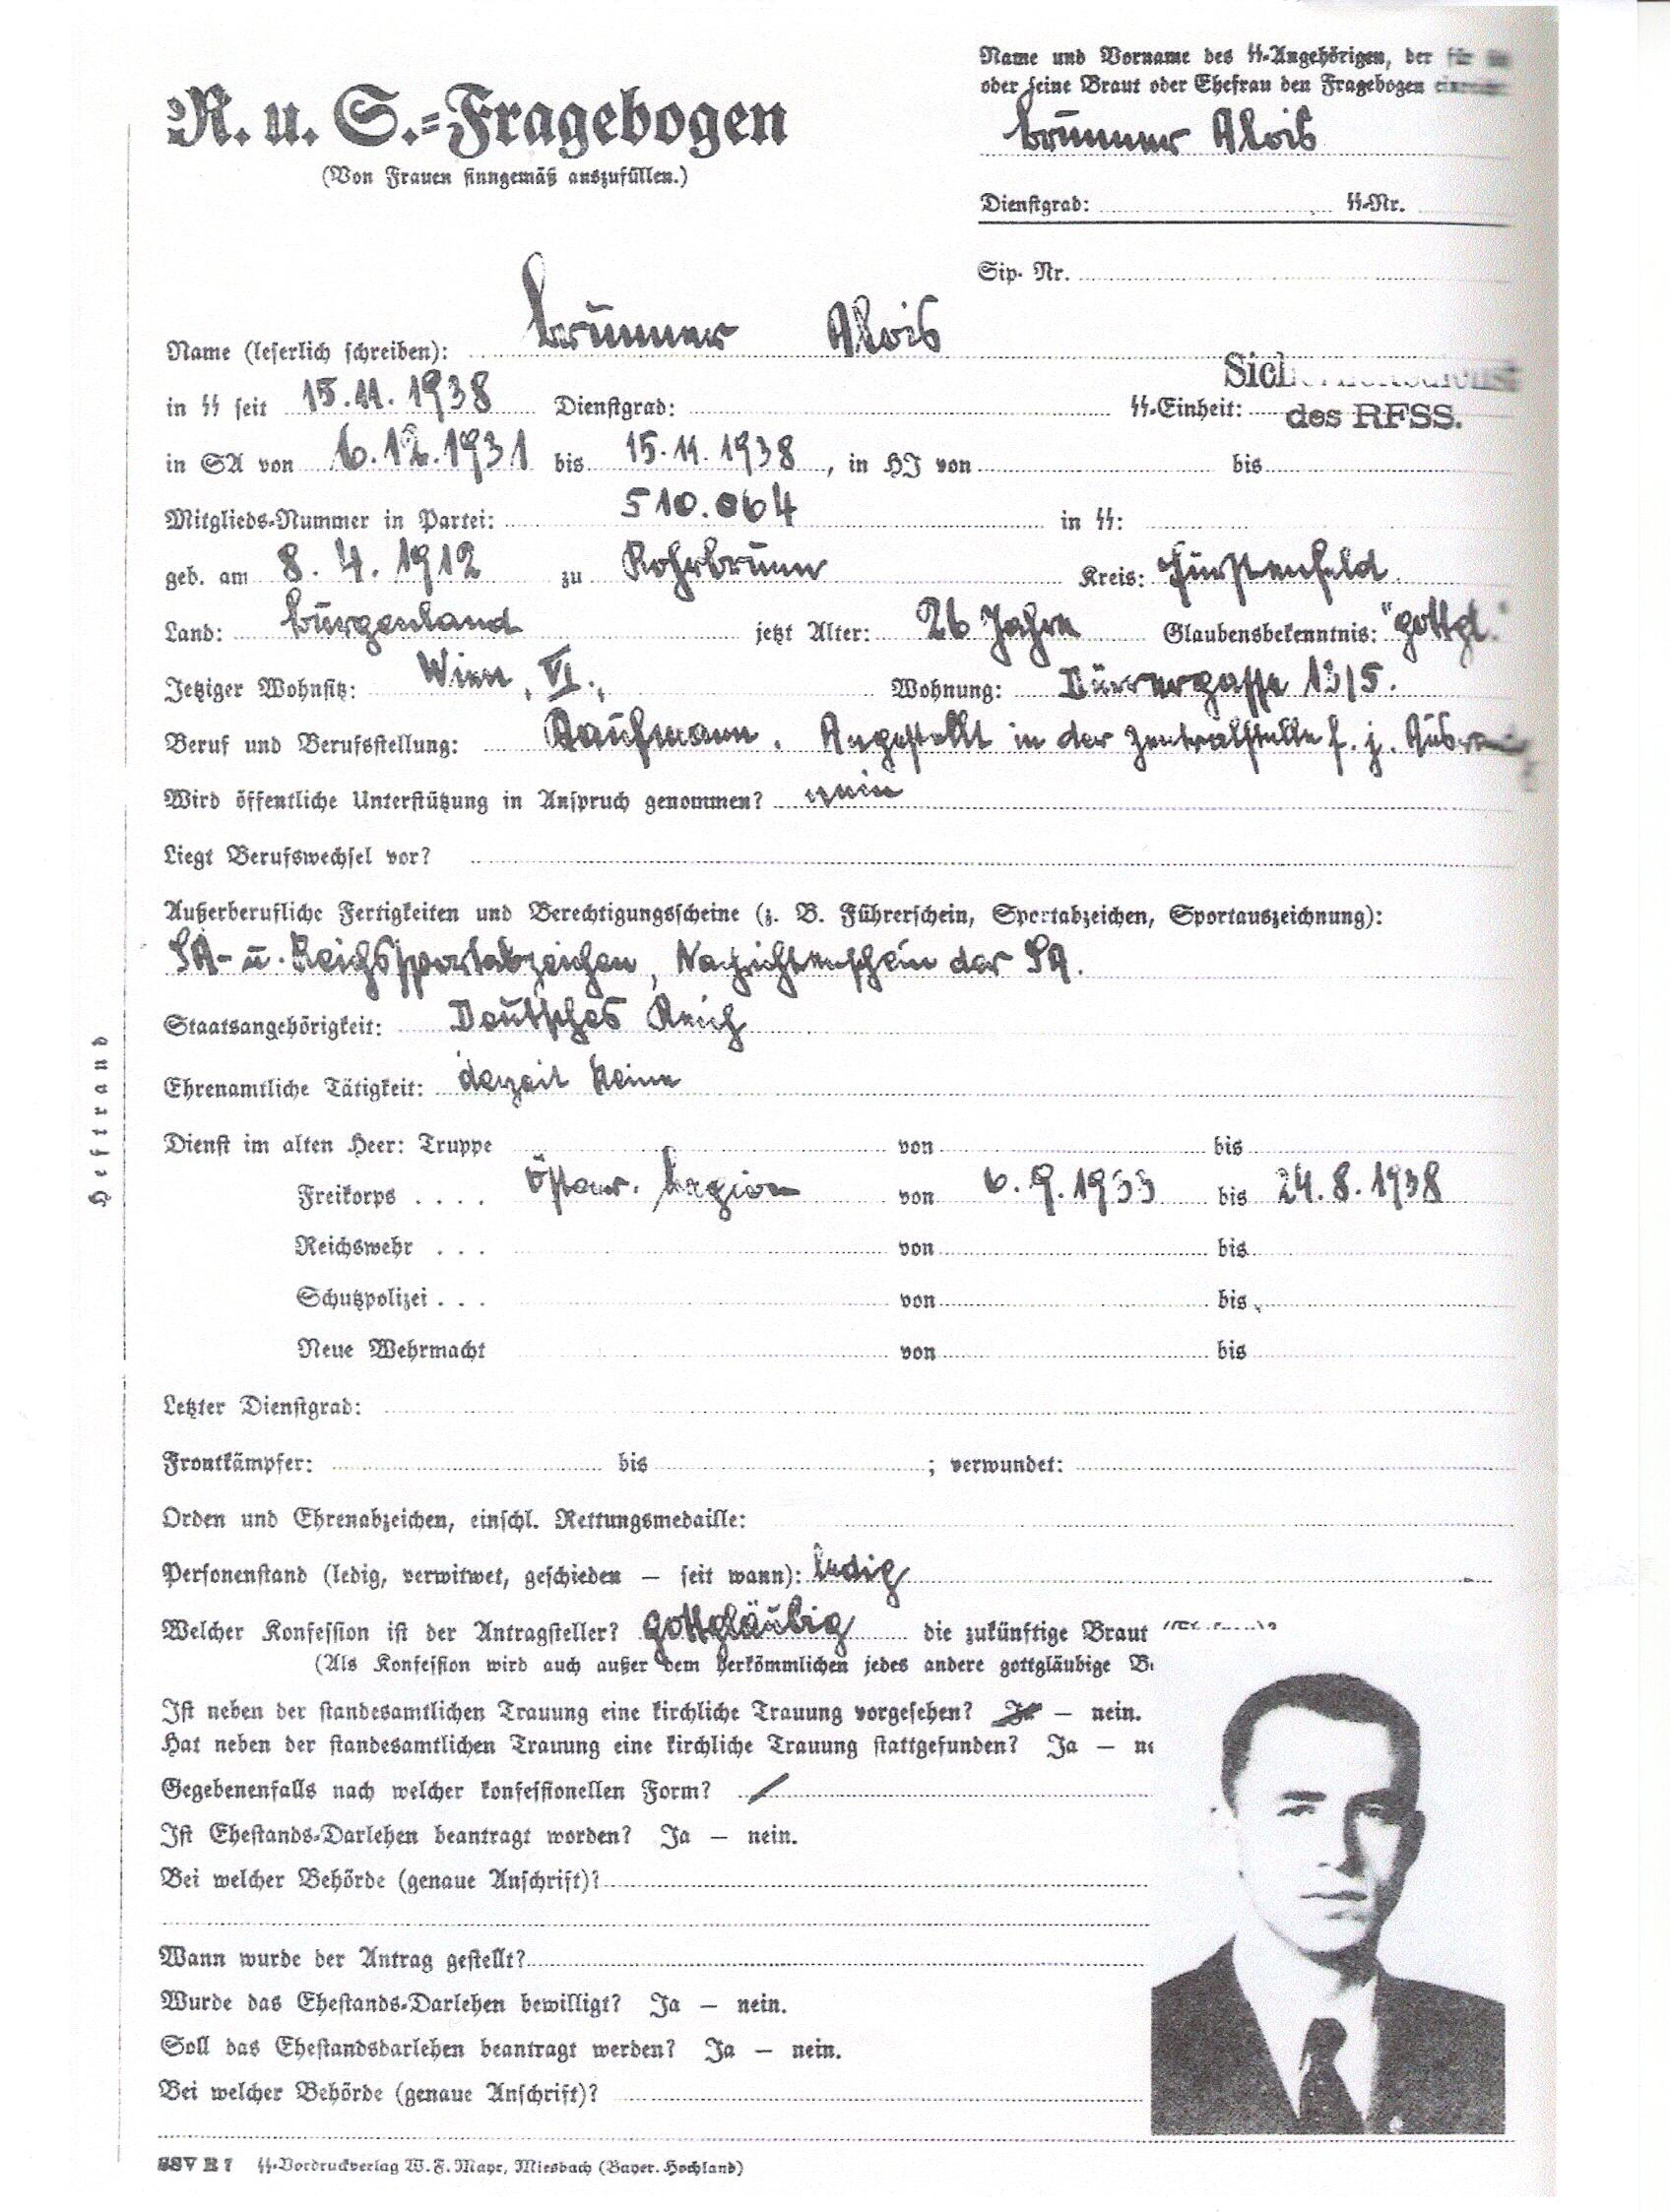 Name und Vorname des SS-Angehörigen, der für
oder seine Braut oder Ehefrau den Fragebogen
Brunner Alois
Dienstgrad: SS-Nr.
Sip. Nr.
R. u. S.-Fragebogen
(Von Frauen sinngemäß auszufüllen.)
Name (leserlich schreiben): Brunner Alois
in SS seit 15.11.1938 Dienstgrad: SS-Einheit: des RFSS.
in SA von 6.12.1931 bis 15.11.1938, in HJ von bis
Mitglieds-Nummer in Partei: 510.064 in SS:
geb. am 8.4.1912 zu Rohrbrunn Kreis: Fürstenfeld
Land: Burgenland jetzt Alter: 26 Jahre Glaubensbekenntnis: "gottgl."
Jetziger Wohnsitz: Wien, VI., Wohnung: Dürergasse 13/5.
Beruf und Berufsstellung: Kaufmann. Angestellt in der Zentralstelle f. j.
Wird öffentliche Unterstützung in Anspruch genommen? nein
Liegt Berufswechsel vor?
Außerberufliche Fertigkeiten und Berechtigungsscheine (z. B. Führerschein, Sportabzeichen, Sportauszeichnung):
SA- u. Reichssportabzeichen, Nachrichtenschein der SA.
Staatsangehörigkeit: Deutsches Reich
Ehrenamtliche Tätigkeit: derzeit keine
Dienst im alten Heer: Truppe von bis
Freikorps . . . . Österr. Legion von 6.9.1933 bis 24.8.1938
Reichswehr . . . von bis
Schutzpolizei . . . von bis
Neue Wehrmacht von bis
Letzter Dienstgrad:
Frontkämpfer: bis ; verwundet:
Orden und Ehrenabzeichen, einschl. Rettungsmedaille:
Personenstand (ledig, verwitwet, geschieden — seit wann): ledig
Welcher Konfession ist der Antragsteller? gottgläubig die zukünftige Braut
(Als Konfession wird auch außer dem herkömmlichen jedes andere gottgläubige
Ist neben der standesamtlichen Trauung eine kirchliche Trauung vorgesehen? Ja — nein.
Hat neben der standesamtlichen Trauung eine kirchliche Trauung stattgefunden? Ja —
Gegebenenfalls nach welcher konfessionellen Form? /
Ist Ehestands-Darlehen beantragt worden? Ja — nein.
Bei welcher Behörde (genaue Anschrift)?
Wann wurde der Antrag gestellt?
Wurde das Ehestands-Darlehen bewilligt? Ja — nein.
Soll das Ehestandsdarlehen beantragt werden? Ja — nein.
Bei welcher Behörde (genaue Anschrift)?
SS-Vordruckverlag W. F. Mayr, Miesbach (Bayer. Hochland)
Heftrand